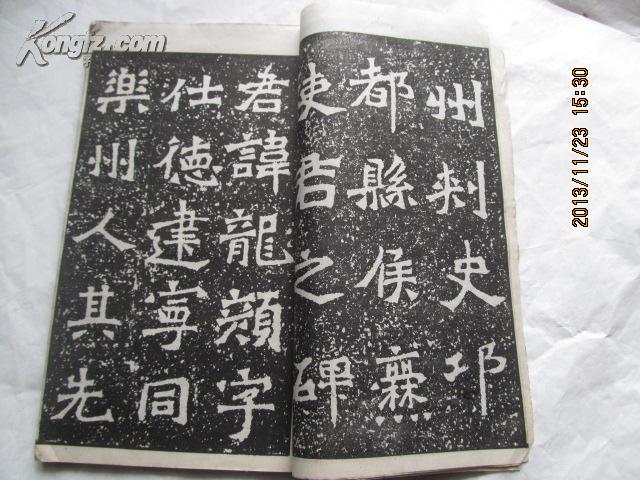 Kongfz.com
2013/11/23 15:30
州刺史邛
都縣侯爨
使君之碑
君諱龍顏字
仕德建寧同
樂州人其先